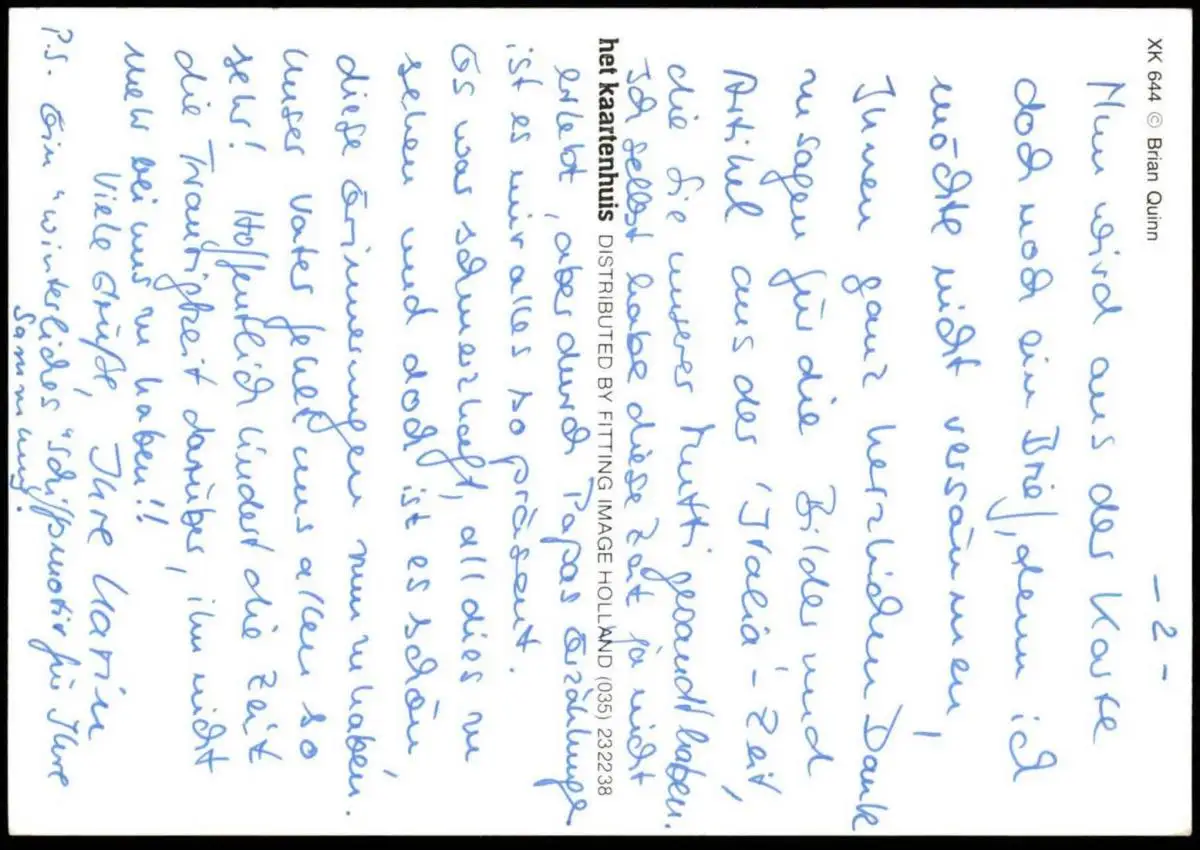 - 2 -
Nun wird aus der Karte
doch noch ein Brief, denn ich
möchte nicht versäumen,
Ihnen ganz herzlichen Dank
zu sagen für die Bilder und
Artikel aus der "Italia"-Zeit,
die Sie unserer Mutti gesandt haben.
Ich selbst habe diese Zeit ja nicht
erlebt, aber durch Papas Erzählunge
ist es mir alles so präsent.
Es war schmerzhaft, all dies zu
sehen und doch ist es schön,
diese Erinnerungen nun zu haben.
Unser Vater fehlt uns allen so
sehr! Hoffentlich lindert die Zeit
die Traurigkeit darüber, ihn nicht
mehr bei uns zu haben!!
Viele Grüße, Ihre Katrin
P.S. Ein "winterliches" Schiffsmotiv für Ihre
Sammlung!
XK 644 © Brian Quinn
het kaartenhuis DISTRIBUTED BY FITTING IMAGE HOLLAND (035) 232238